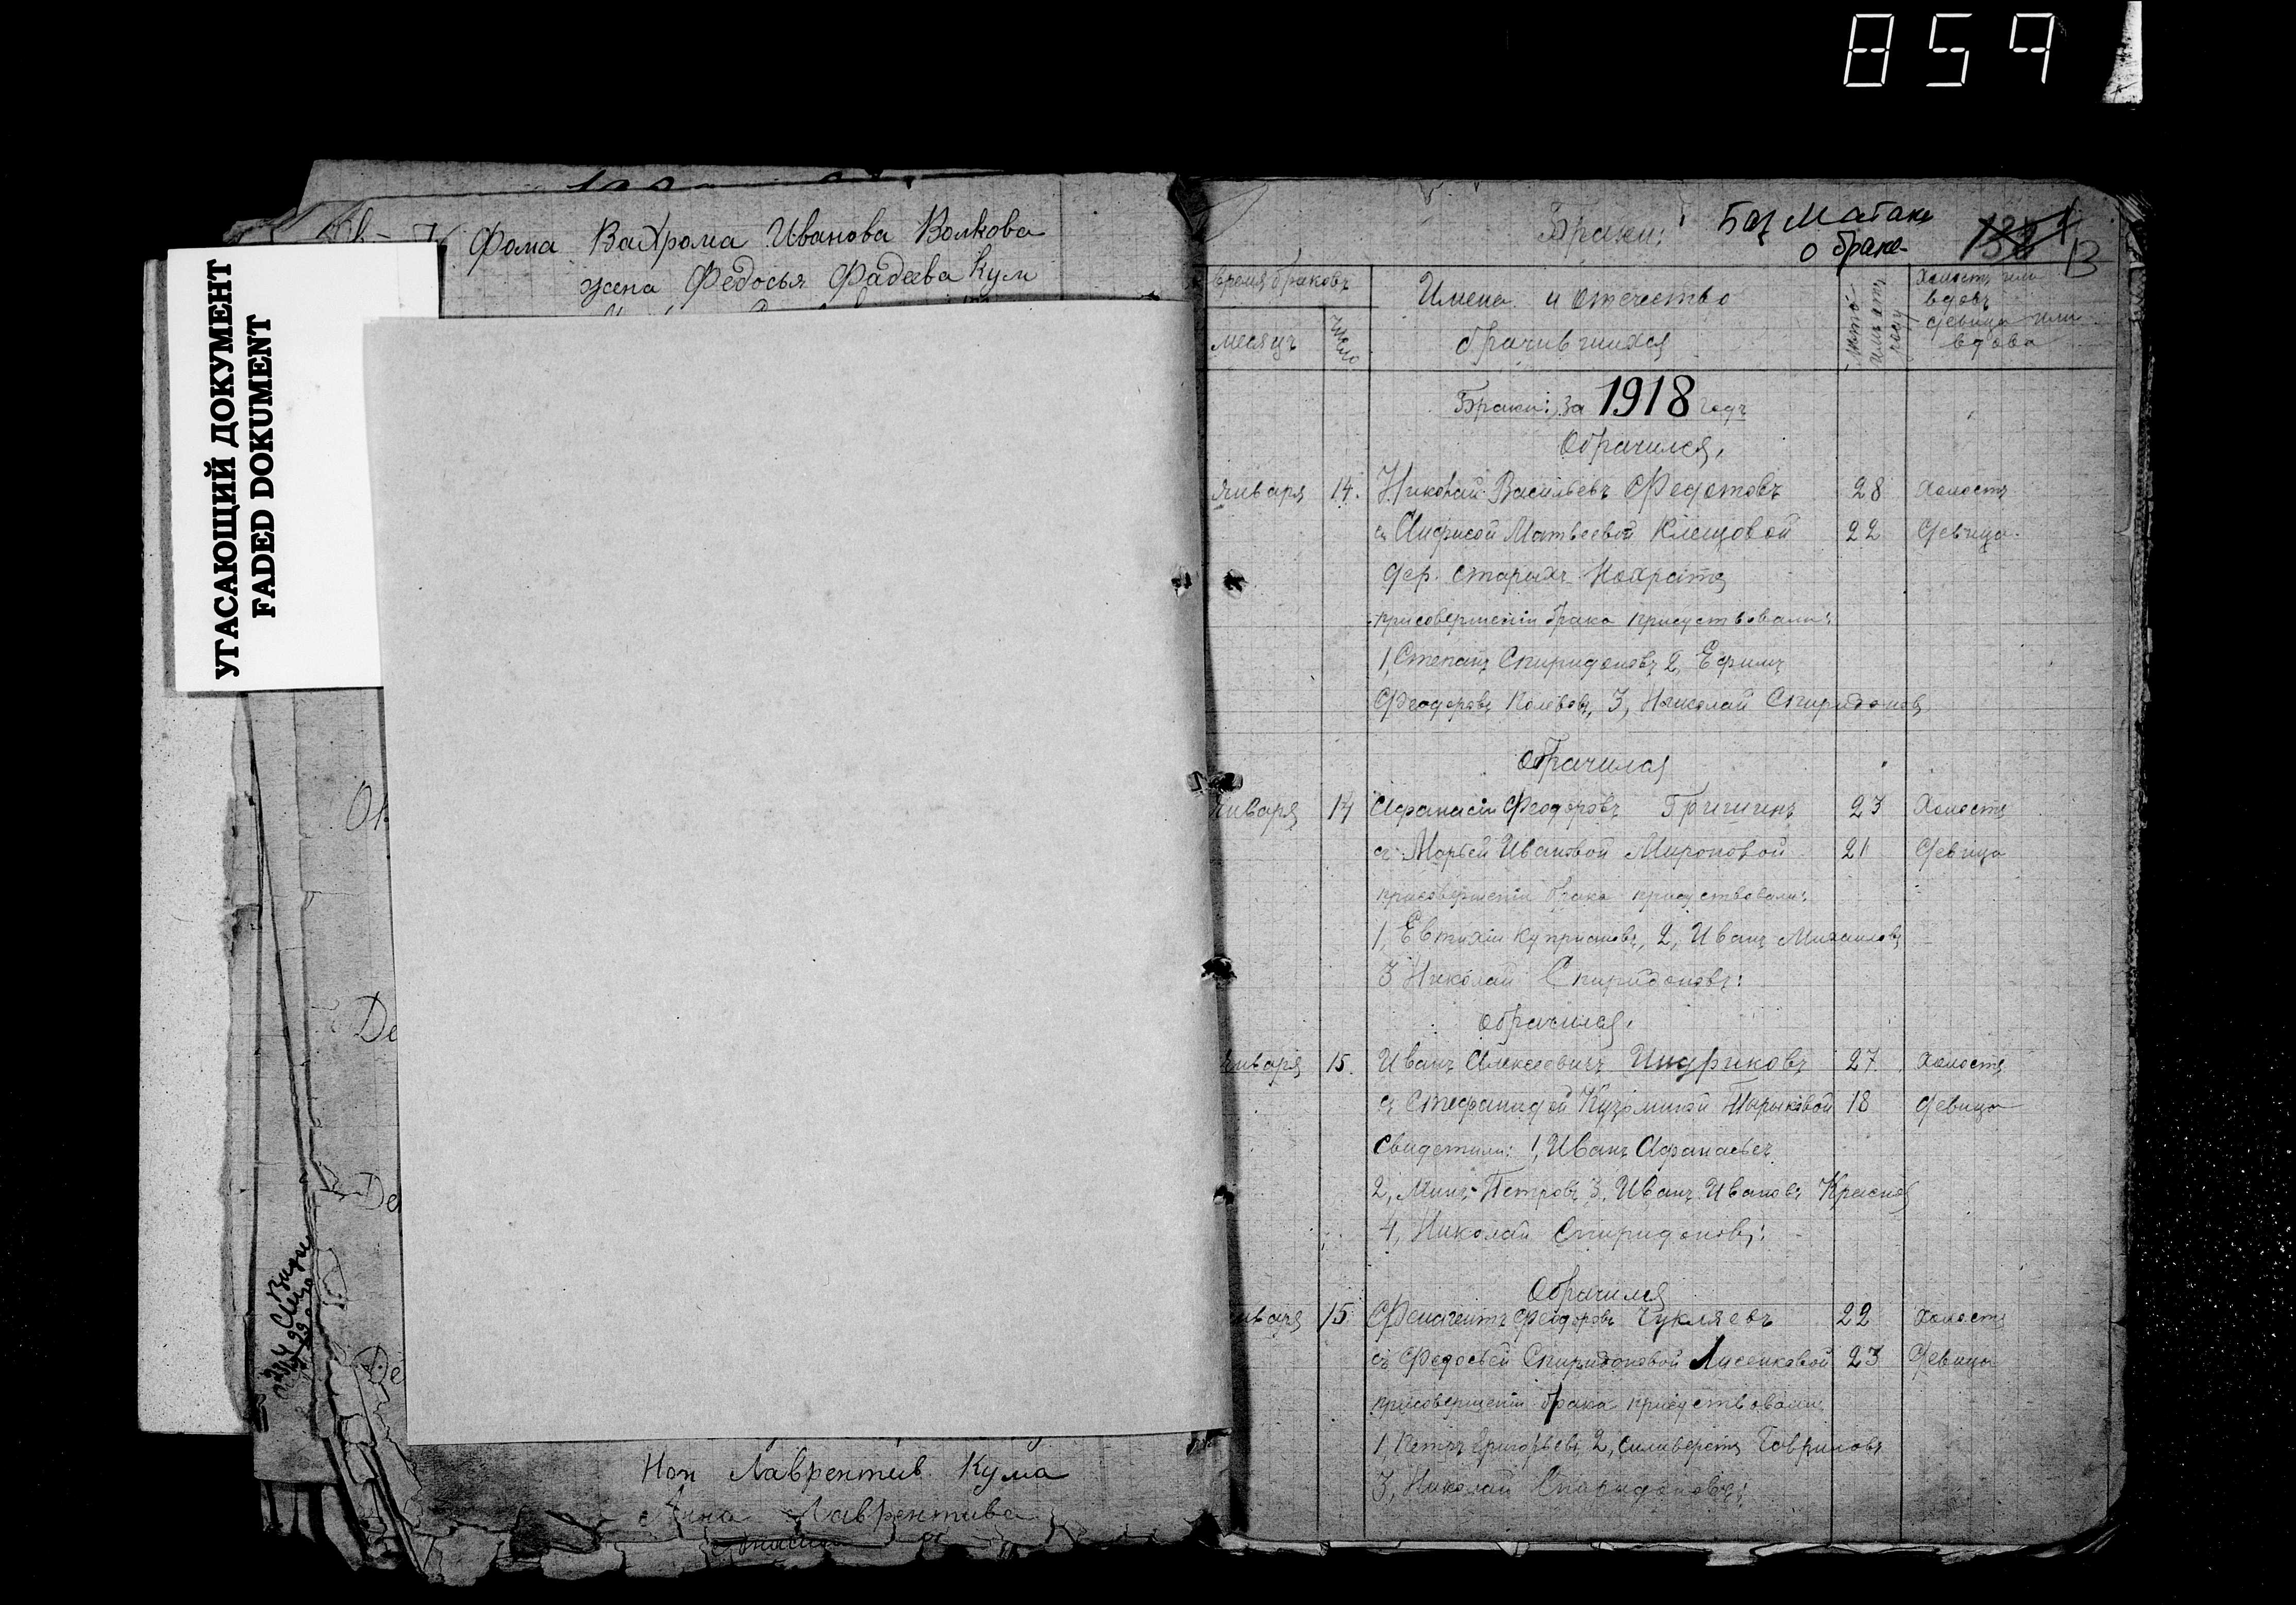 859
УГАСАЮЩИЙ ДОКУМЕНТ
FADED DOKUMENT
Фома Вахрома Иванова Волкова
жена Федосья Фадеева Кум
Ноя Лаврентив Кума
Анна Лаврентива
Браки:
Баз Матаки
о браке
13
время браковъ
месяцъ
число
Имена и Отечество
брачившихся
Холостъ или
вдовъ
девица или
вдова
Браки: за 1918 годъ
Обрачился,
Января 14. Николай Васильевъ Федотовъ 28 Холостъ
съ Анфисой Матвеевой Клещовой 22 Девица
дер. Старыхъ
присовершеніи брака присуствовали:
1, Степанъ Спиридоновъ 2, Ефимъ
Феодоровъ 3, Николай Спиридоновъ
Обрачился
Января 14 Афанасіи Феодоровъ Гришинъ 23 Холостъ
съ Марьей Ивановой Мироновой 21 Девица
присовершеніи брака присуствовали:
1, Евтихіи Куприановъ, 2, Иванъ Михаиловъ
3 Николай Спиридоновъ:
Обрачился,
Января 15. Иванъ Алексеевичъ Индриковъ 27 Холостъ
съ Стефанидой Кузминой 18 Девица
Свидетили: 1, Иванъ Афанасьевъ
2, Петровъ 3, Иванъ Ивановъ
4, Николай Спиридоновъ:
Обрачился
Января 15 Феодоровъ Чукляевъ 22 Холостъ
съ Федосьей Спиридоновой Лисенковой 23 Девица
присовершеніи брака присуствовали
1, Петръ Григорьевъ 2, Силиверстъ Гавриловъ
3, Николай Спиридоновъ: